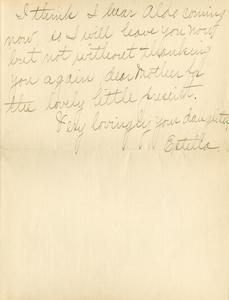 I think I hear Aldo coming
now, so I will leave you now
but not without thanking
you again dear Mother for
the lovely little present.
Very lovingly your daughter
Estella.